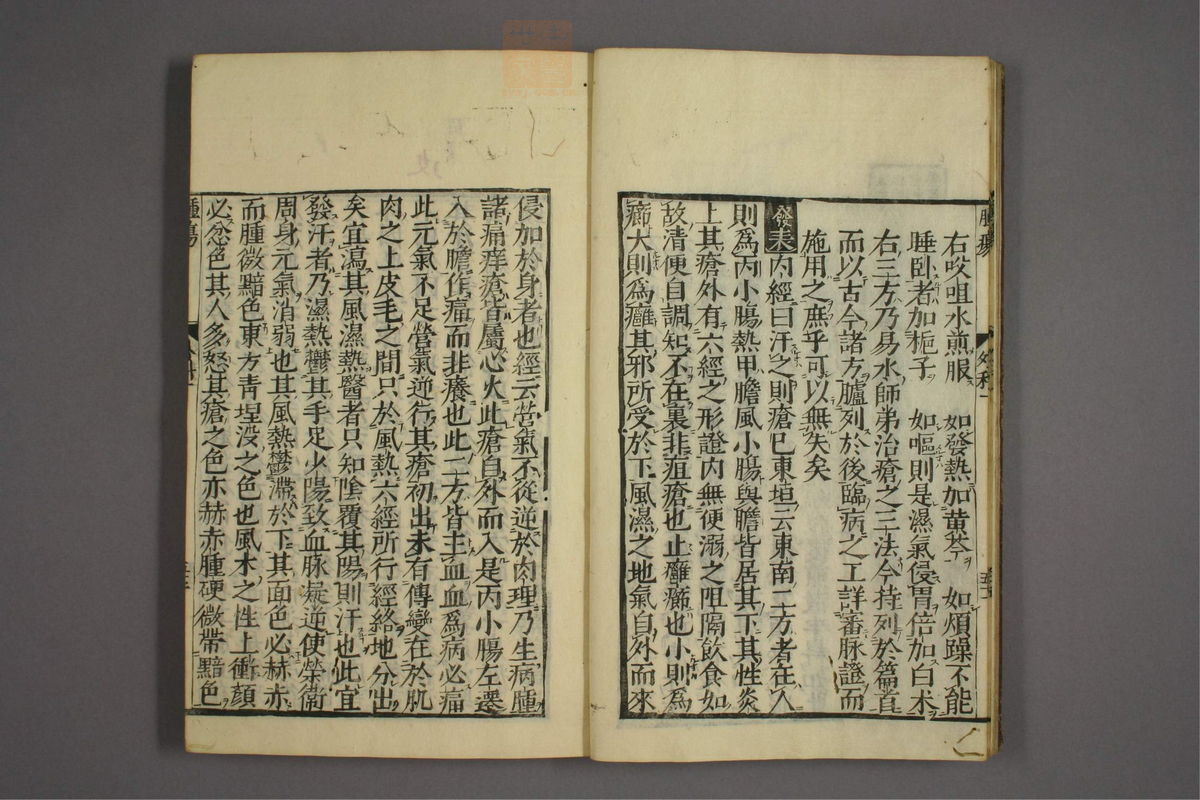 右㕮咀水煎服　如發熱加黄芩　如煩躁不能
睡卧者加梔子　如嘔則是濕氣侵胃倍加白术
右三方乃易水師弟治瘡之三法今持列於篇首
而以古今諸方臚列於後臨病之工詳審脉證而
施用之庶乎可以無失矣
發表内經曰汗之則瘡已東垣云東南二方者在人
則爲丙小腸熱甲膽風小腸與膽皆居其下其性炎
上其瘡外有六經之形證内無便溺之阻隔飲食如
故清便自調知不在裏非疽瘡也止癰癤也小則爲
癤大則爲癰其邪所受於下風濕之地氣自外而來
侵加於身者也經云營氣不從逆於肉理乃生病腫
諸痛痒瘡皆屬心火此瘡自外而入是丙小腸左遷
入於膽作痛而非癢也此二方皆主血血爲病必痛
此元氣不足營氣逆行其瘡初出未有傳變在於肌
肉之上皮毛之間只於風熱六經所行經絡地分出
矣宜瀉其風濕熱醫者只知陰覆其陽則汗也此宜
發汗者乃濕熱鬱其手足少陽致血脉凝逆使榮衛
周身元氣消弱也其風熱鬱滯於下其面色必赫赤
而腫微黯色東方青埋没之色也風木之性上衝顔
必忿色其人多怒其瘡之色亦赫赤腫硬微帶黯色
腫瘍